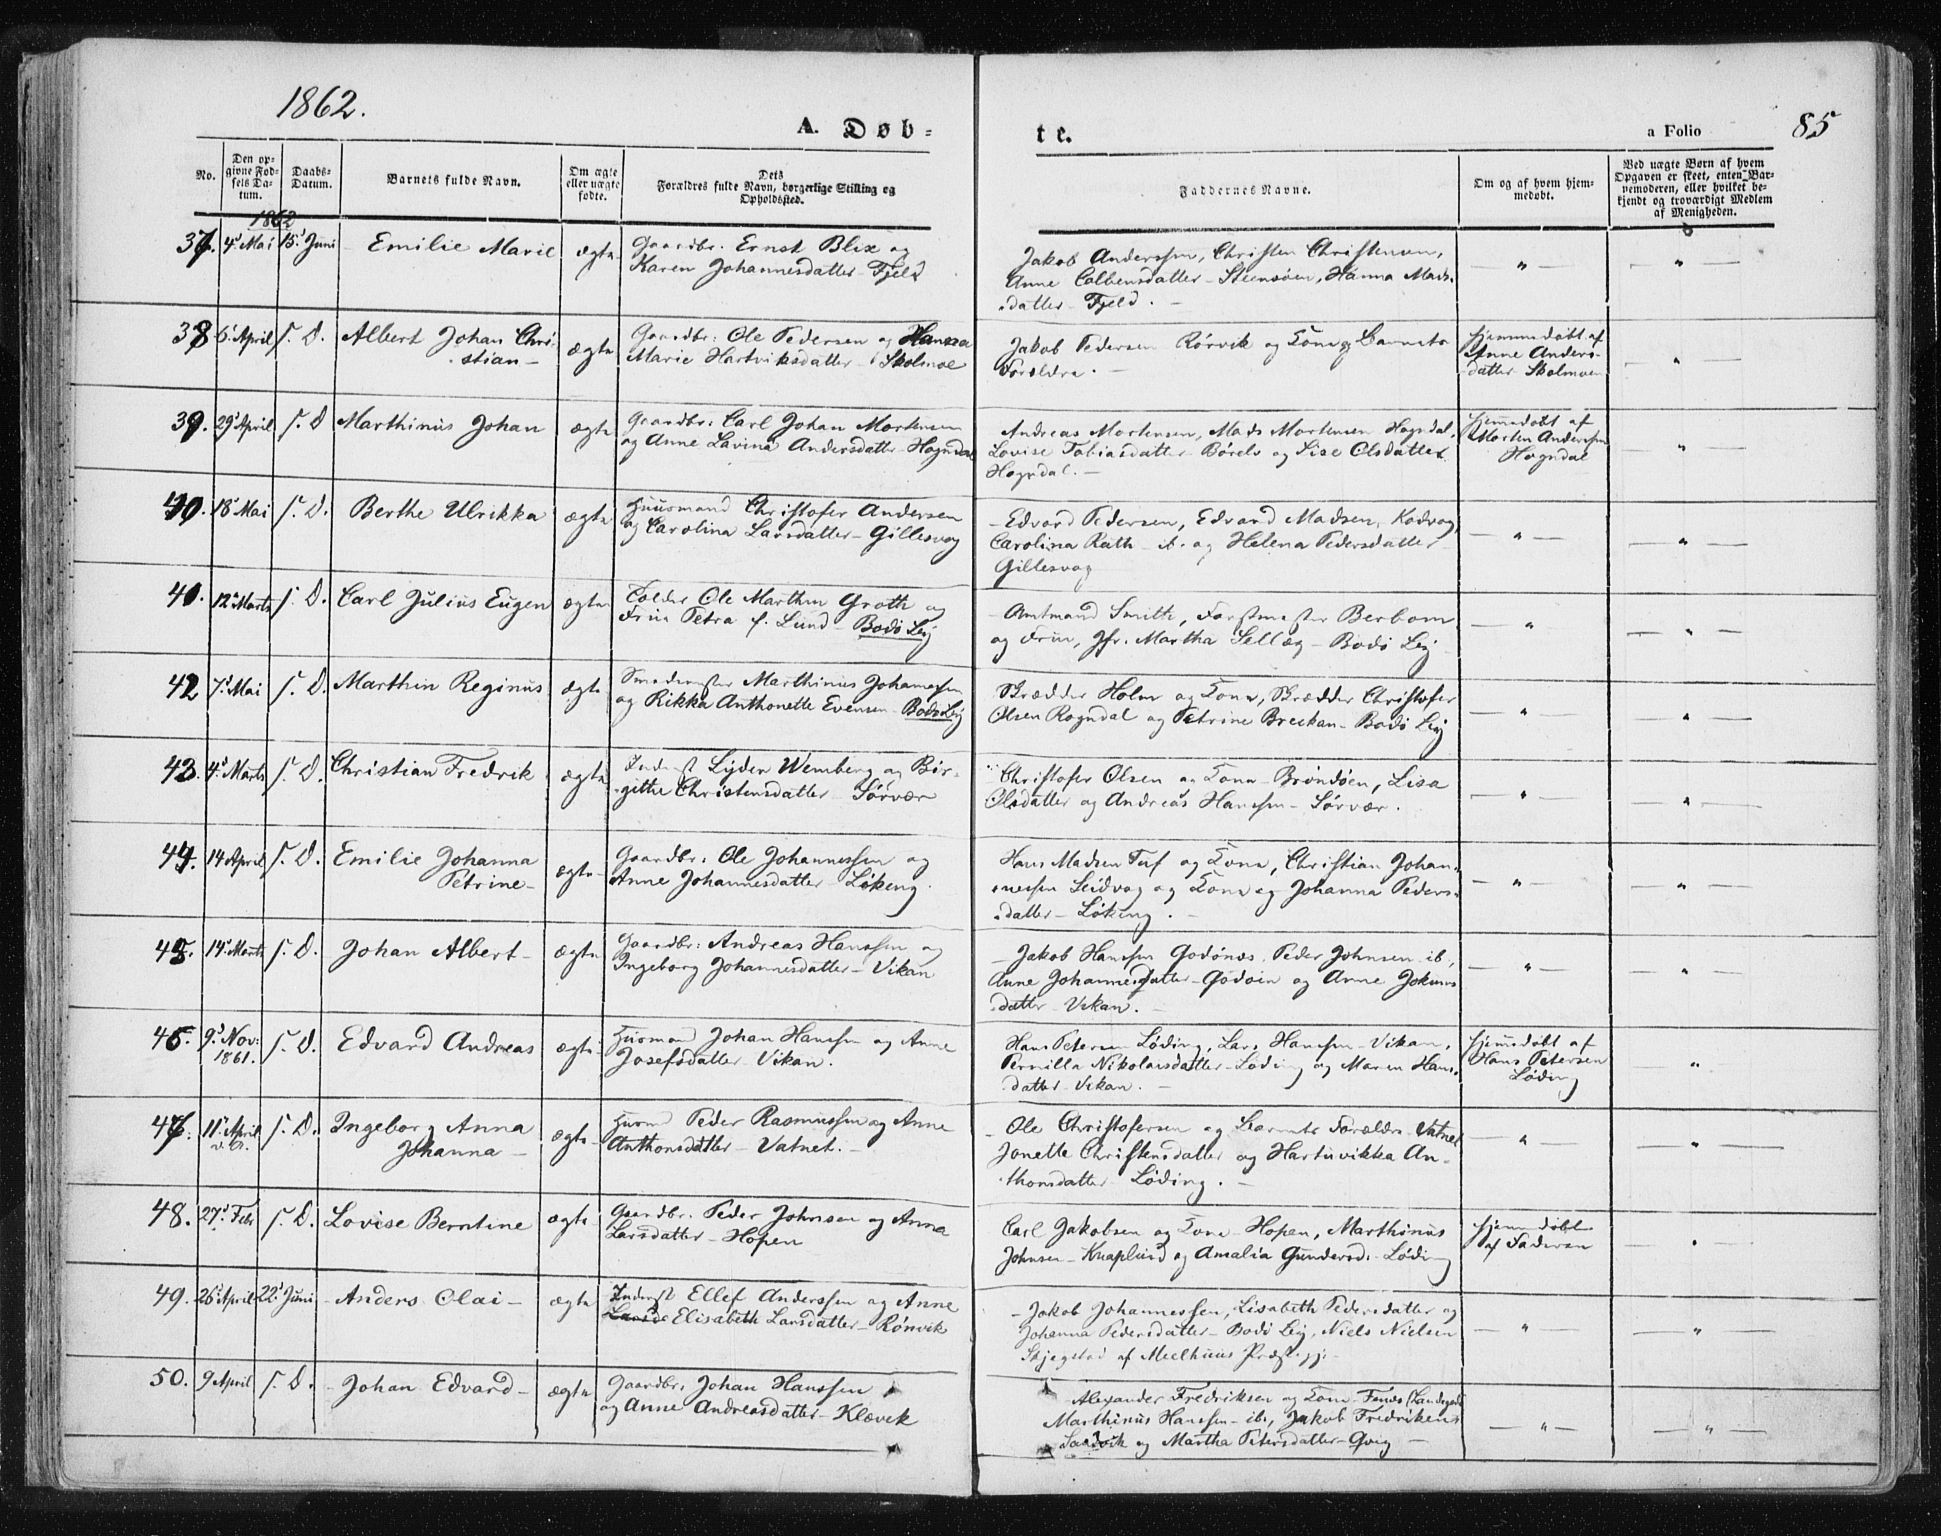 1862.
A. Døb-
te.
a Folio 85
No.
Den op-
givne Fød-
sels Da-
tum.
Daabs-
Datum.
Barnets fulde Navn.
Om ægte
eller uægte
fødte.
Dets
Forældres fulde Navn, borgerlige Stilling og
Opholdssted.
Faddernes Navne.
Om og af hvem hjem-
medøbt.
Ved uægte Børn af hvem
Opgaven er skeet, enten Bar-
nemoderen, eller hvilket be-
kjendt og troværdigt Medlem
af Menigheden.
1862
37. 4' Mai 15' Juni Emilie Marie ægte
Gaardbr. Ernst Blix og
Karen Johannesdatter - Fjeld
Jakob Anderssen, Christen Christensen,
Anne Colbensdatter - Steensøen, Hanna Mads-
datter - Fjeld. -
38 6' April s. D. Albert Johan Chri-
stian - ægte
Gaardbr: Ole Pedersen og Hanna
Marie Hartviksdatter - Skolmoe
Jakob Pedersen Rørvik og Kone og Barnets
Forældre. -
Hjemmedøbt af
Anne Anders-
datter Skolmoen
39. 29' April s. D Marthinus Johan ægte
Gaardbr: Carl Johan Mortensen
og Anne Lavina Andersdatter - Hogndal
Andreas Mortensen, Mads Mortensen Hogndal,
Lovise Tobiasdatter - Børelv og Lise Olsdatter
Hogndal. -
Hjemmedøbt af
Morten Anderssen
Hogndal
40. 18' Mai s. D. Berthe Ulrikka ægte
Huusmand Christofer Andersen
og Carolina Larsdatter - Gillesvog
- Edvard Pedersen, Edvard Madsen, Kodvog
Carolina Rath - ib. og Helena Pedersdatter
Gillesvog
41. 12' Marts s. D. Carl Julius Eugen ægte
Tolder Ole Marthin Groth og
Frue Petra f. Lund - Bodø Leij
- Amtmand Smith, Forstmester Berbom
og Frue, Jfr. Martha Selleg - Bodø Leij
42 7' Mai s. D. Marthin Reginus ægte
Smedmester Marthinus Johannessen
og Rikka Anthonette Evensen - Bodø Leij
Skrædder Holm og Kone, Skrædder Christofer
Olsen Rogndal og Petrine Breckan - Bodø Leij
43. 4' Marts s. D. Christian Fredrik ægte
Inderst Lyder Wemberg og Bir-
gitte Christensdatter - Sørvær
Christofer Olsen og Kone - Brøndøen, Lisa
Olsdatter og Andreas Hanssen - Sørvær.
44. 14 April s. D. Emilie Johanna
Petrine - ægte
Gaardbr: Ole Johannessen og
Anne Johannesdatter - Løkeng.
Hans Madsen Tuf og Kone, Christian Johan-
nessen Seidvog og Kone og Johanna Peders-
datter - Løkeng. -
45. 14' Marts s. D. Johan Albert - ægte
Gaardbr: Andreas Hanssen og
Ingeborg Johannesdatter - Vikan
- Jakob Hanssen Godønes, Peder Johnsen ib.,
Anne Johannesdatter - Godøen og Anne Johans
datter - Vikan. -
46. 9' Nov:
1861. s. D. Edvard Andreas ægte
Husmand Johan Hanssen og Anne
Josefsdatter - Vikan.
Hans Petersen Løding, Lars Hanssen - Vikan,
Pernilla Nikolaisdatter - Løding og Maren Hans-
datter - Vikan. -
Hjemmedøbt af
Hans Petersen
Løding
47. 11' April s. D. Ingeborg Anna
Johanna - ægte
Husmd Peder Rasmussen og Anne
Anthonsdatter - Vatnet. -
- Ole Christofersen og Barnets Forældre - Vatnet
Jonette Christensdatter og Hartuvikka An-
thonsdatter - Løding. -
48. 27' Febr s. D. Lovise Berntine ægte
Gaardbr. Peder Johnsen og Anna
Larsdatter - Hopen
Carl Jakobsen og Kone - Hopen, Marthinus
Johnsen - Knaplund og Amalia Gundersd: - Løding
Hjemmedøbt
af Faderen
49. 26' April 22' Juni - Anders Olai - ægte
Inderst Ellef Anderssen og Anne
Elisabeth Larsdatter - Rønvik
- Jakob Johannessen, Lisabeth Pedersdatter og
Johanna Pedersdatter - Bodø Leij, Niels Nielsen
Skjegstad af Meelhuus Præstegj: -
50. 9 April s. D. - Johan Edvard - ægte
Gaardbr. Johan Hanssen
og Anne Andreasdatter - Kløvik
Alexander Fredriksen og Kone - Fenes (Landego)
Marthinus Hanssen - ib., Jakob Fredriksen
Sandvik og Martha Petersdatter - Qvig -